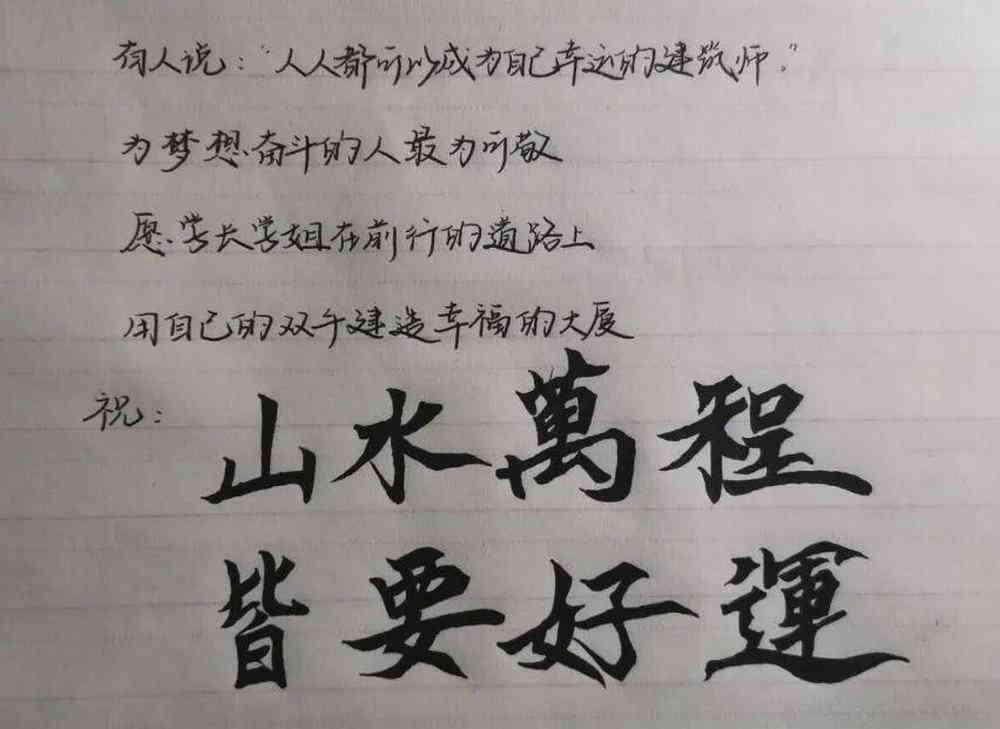 有人说：“人人都可以成为自己幸运的建筑师。”
为梦想奋斗的人最为可敬
愿学长学姐在前行的道路上
用自己的双手建造幸福的大厦
祝：
山水萬程
皆要好運